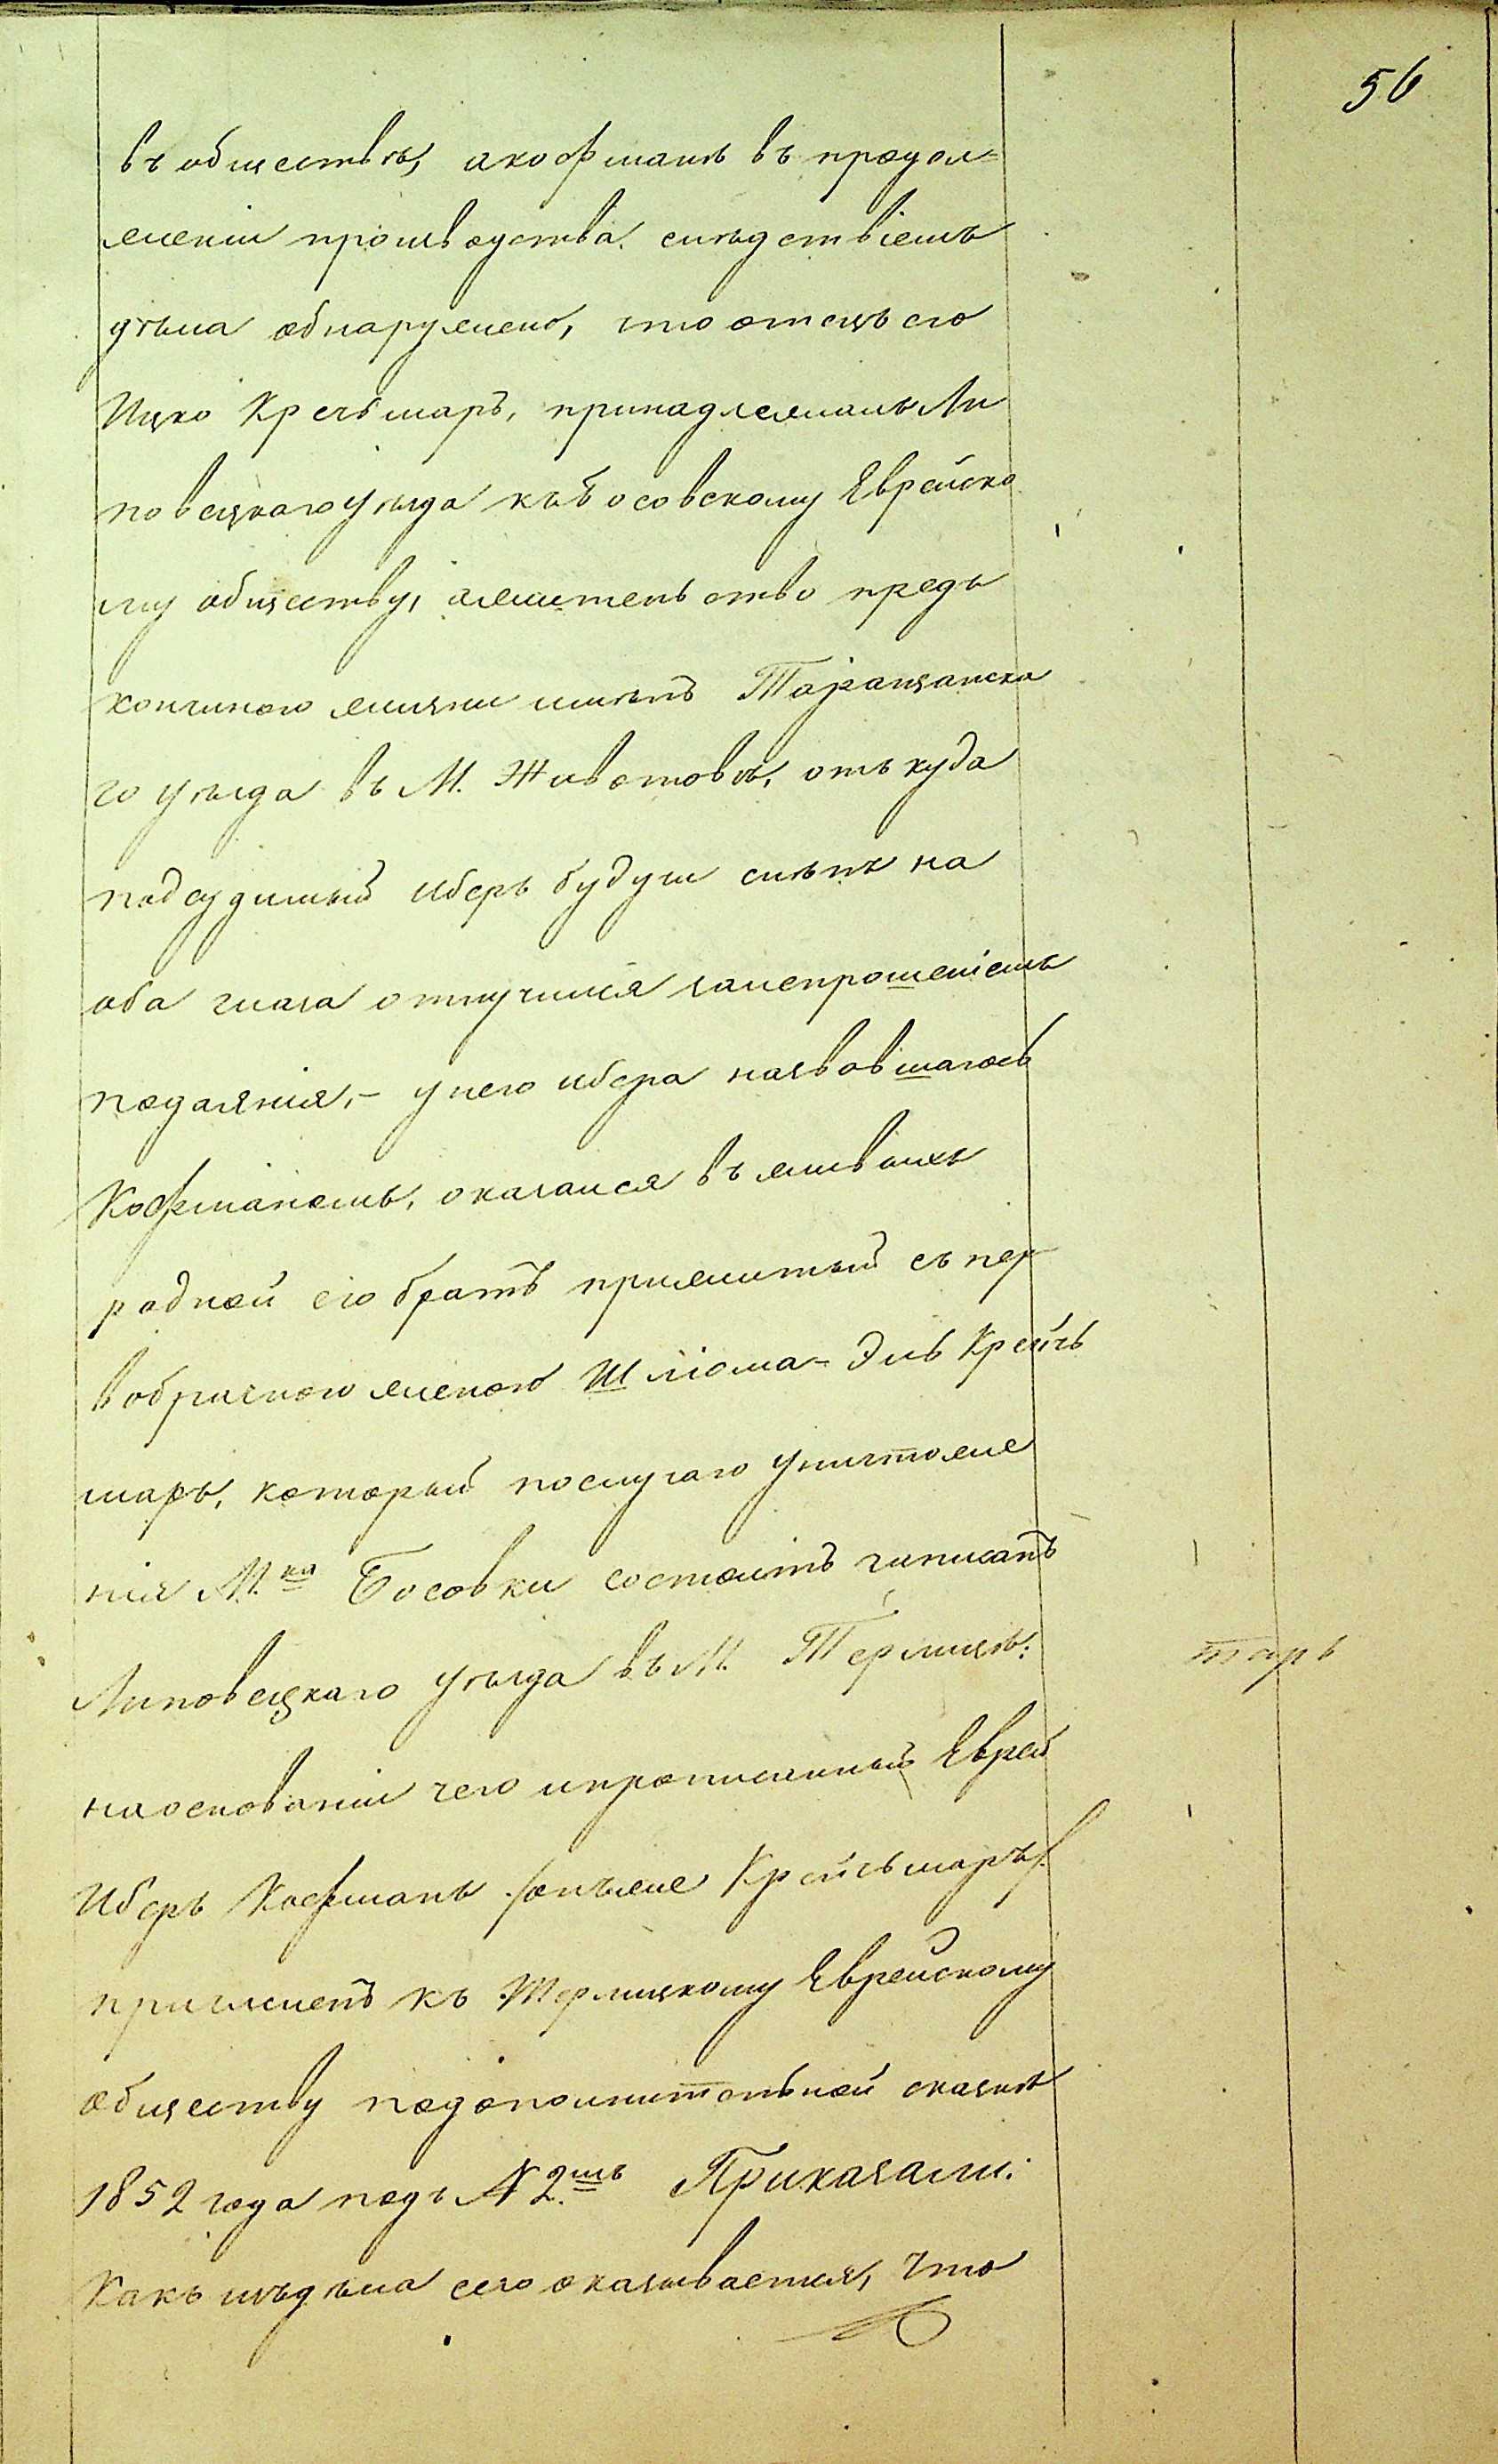 56
въ обществѣ, а кофманъ въ продол=
женіи производства. слѣдствіемъ
дѣла обнаружено, что отецъ его
Ицко Кречьмаръ, принадлежалъ Ли
повецкаго уѣзда къ Босовскому Еврейско
му обществу, а жительство предъ
кончиною жизни имѣлъ Таращанска
го уѣзда въ М. Животовѣ, отъ куда
подсудимый Иберъ будучи слѣпъ на
оба глаза отлучился за испрошеніемъ
подаянія, – у него Ибера назвавшагось
Кофманомъ, оказался въ живыхъ
родной его братъ прижитый съ пер
вобрачною женою Шліома-Эль Крейчь
маръ, который по случаю уничтоже
нія М.ка Босовки состоитъ записанъ
Липовецкаго уѣзда въ М. Терлицѣ:
на основаніи чего и прописанный Еврей
Иберъ Кофманъ /онъ же Крейчьмаръ/
причисленъ къ Терлицкому Еврейскому
обществу по дополнительной сказкѣ
1852 года подъ № 2.мъ Приказали:
Какъ изъ дѣла сего оказывается, что
таръ